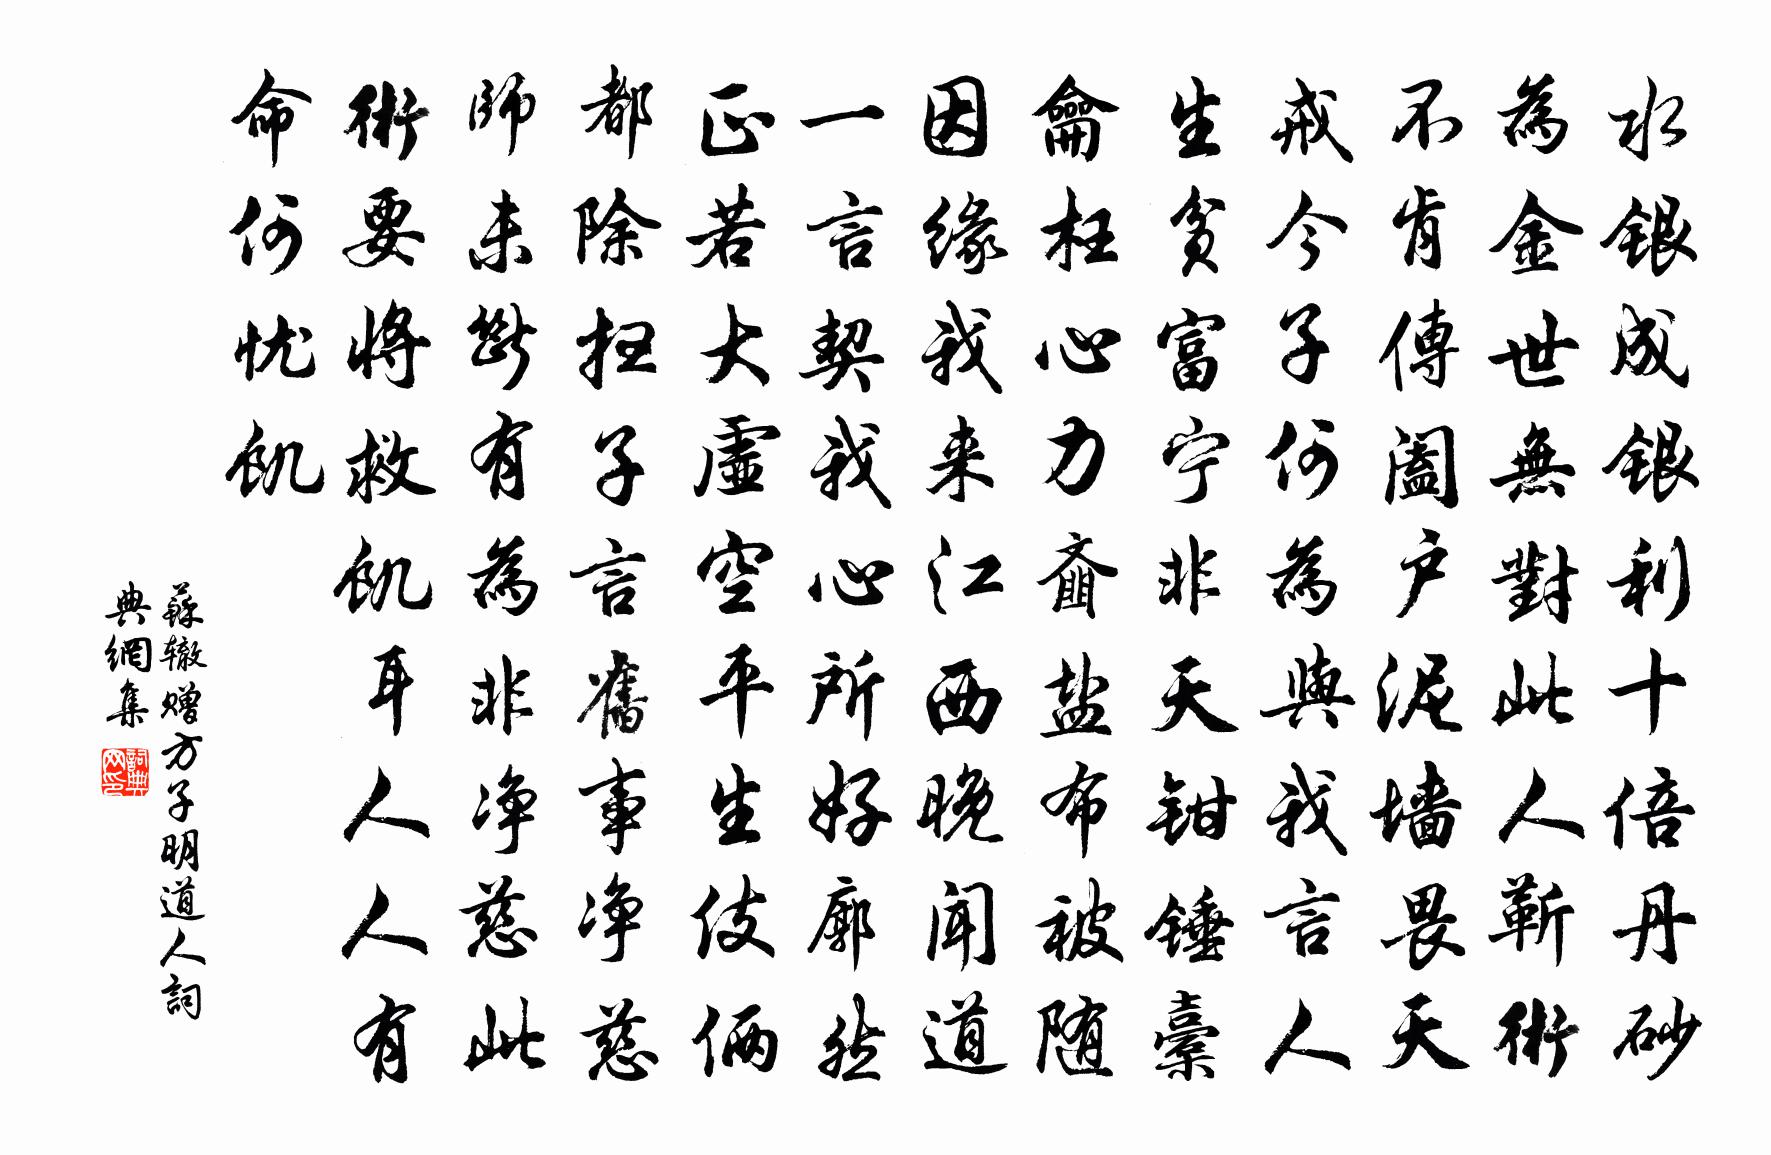 水銀成銀利十倍丹砂
為金世無對此人靳術
不肯傳闔户泥墙畏天
戒今子何為與我言人
生貧富宁非天钳錘橐
龠枉心力齑盐布被随
因缘我来江西晚闻道
一言契我心所好廓然
正若大虚空平生伎俩
都除扫子言舊事净慈
師未斷有為非净慈此
術要將救飢耳人人有
命何忧飢
蘇辙赠方子明道人詞
典網集
詞典网印